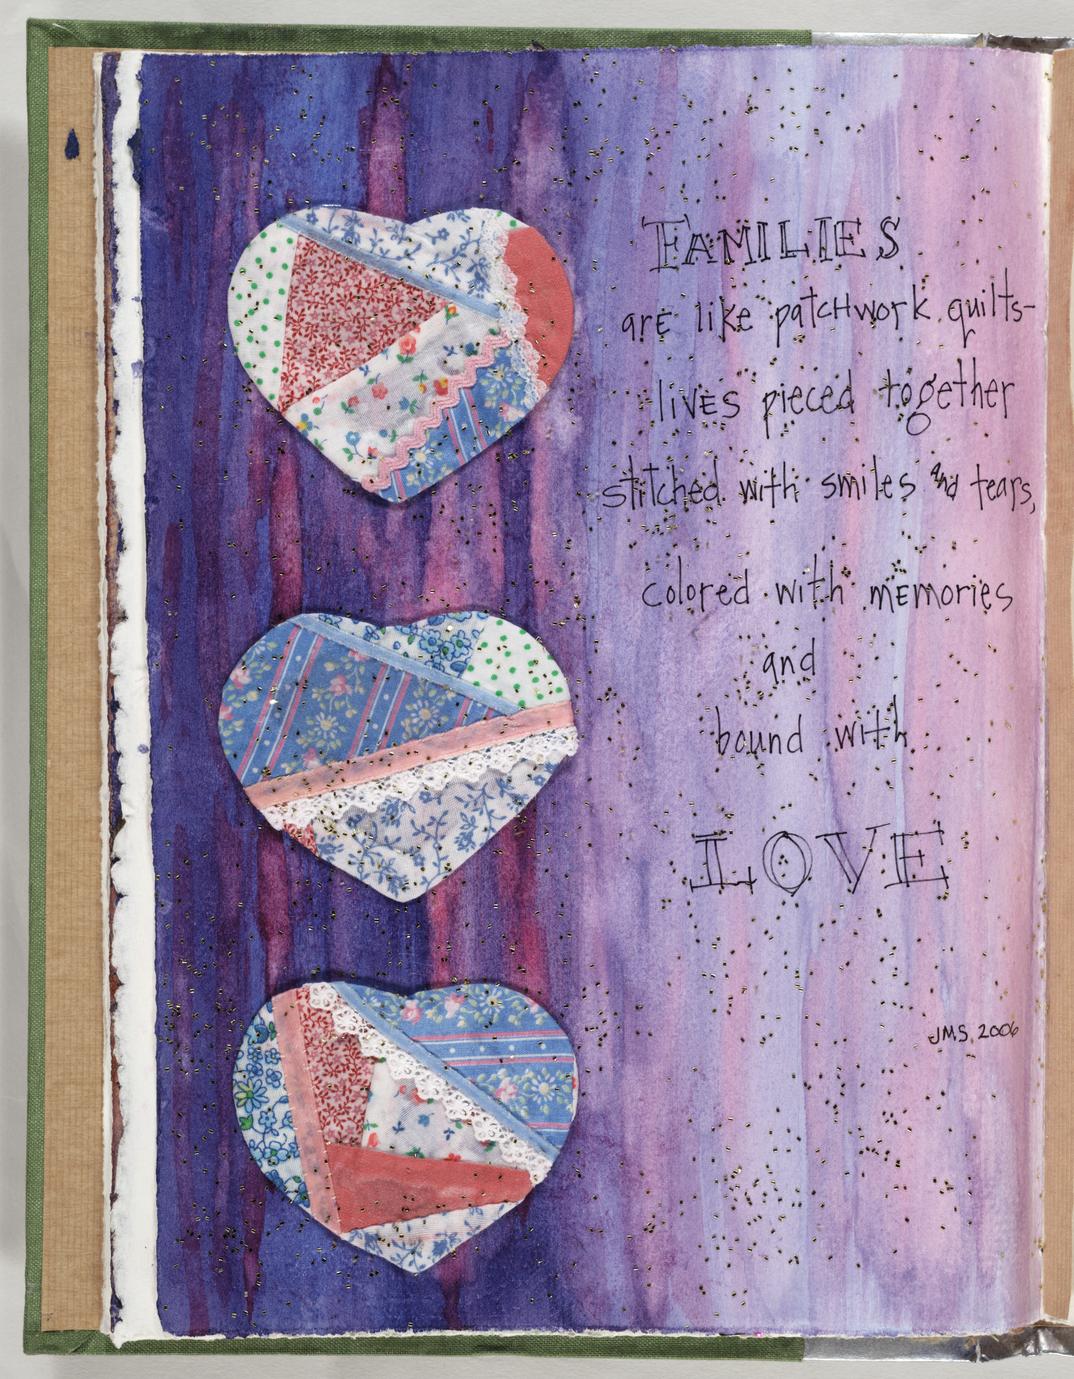 FAMILIES
are like patchwork quilts-
lives pieced together
stitched with smiles and tears,
colored with memories
and
bound with
LOVE
JMS, 2006